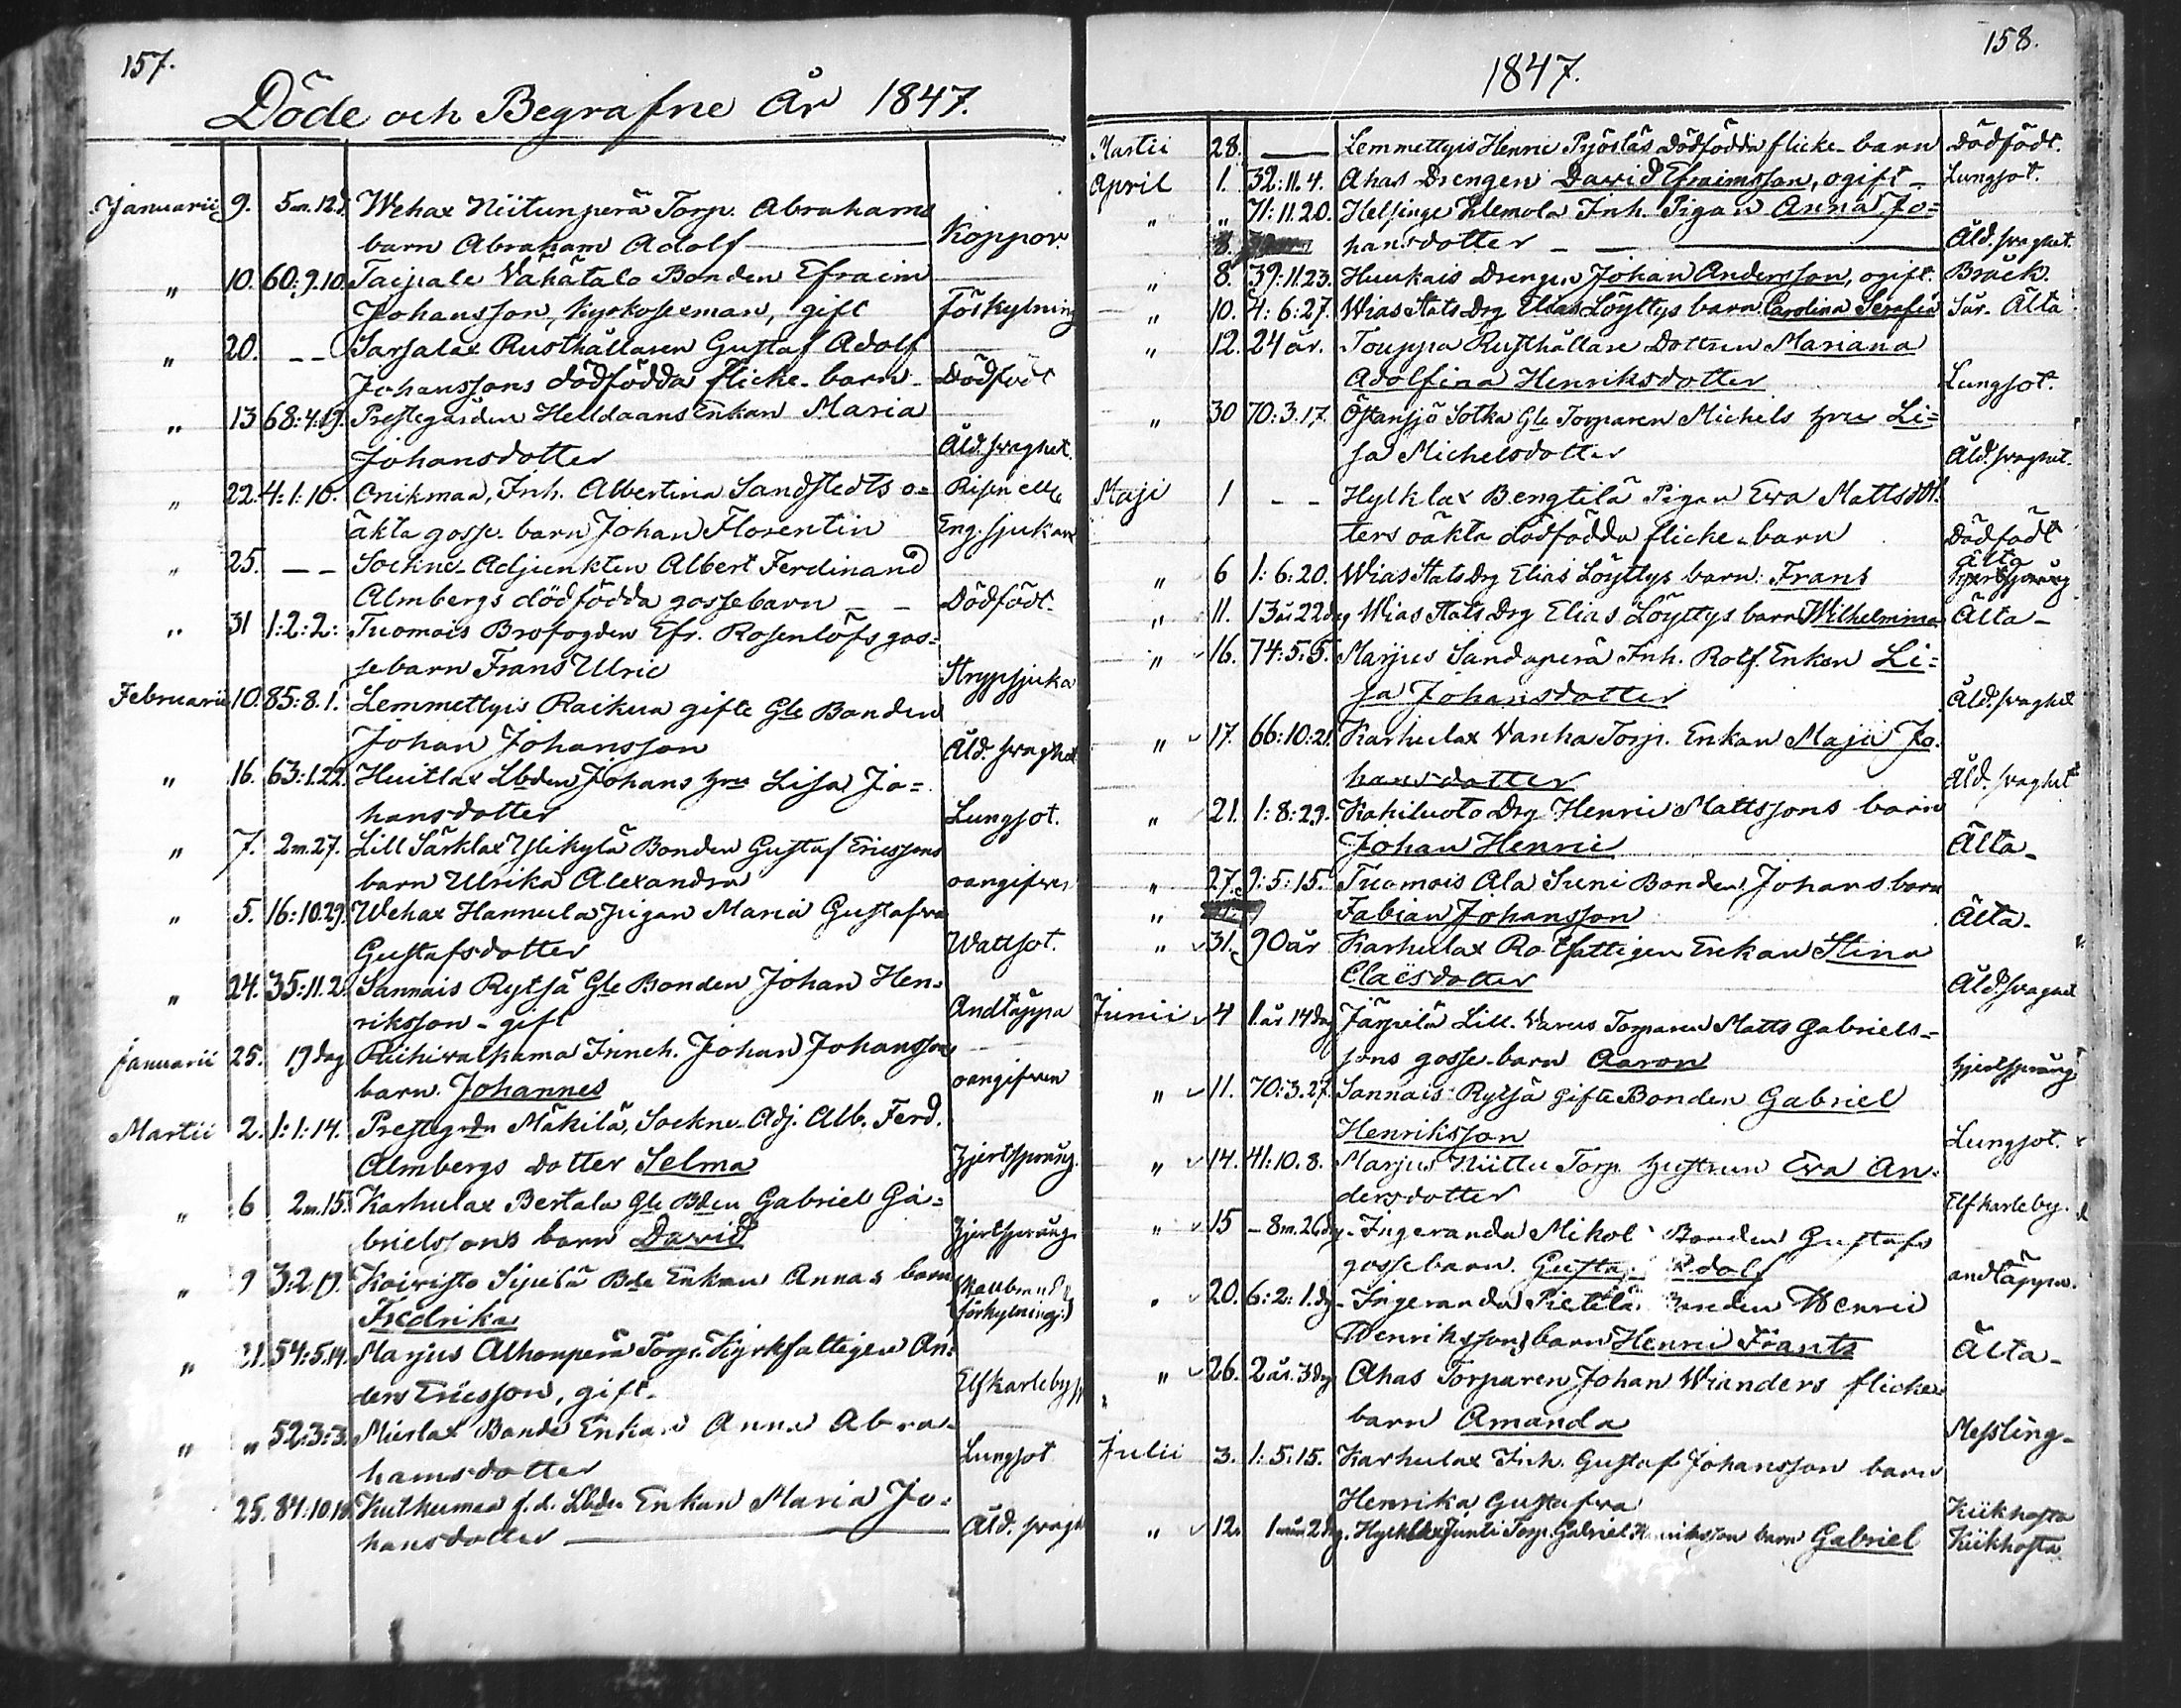 157.
Döde och Begrafne År 1847.
Januarii 9. 5m.12d. Wehax Niitunperä Torp. Abrahams
barn Abraham Adolf — Koppor.
" 10. 60:9.10. Taipale Wähätalo Bonden Efraim
Johansson, Kyrkosexman, gift Förkylning
" 20. -- Sarsalax Rusthållaren Gustaf Adolf
Johanssons dödfödda flicke-barn Dödfödt
" 13 68:4:19. Prestegården Helldaans Enkan Maria
Johansdotter Åld. svaghet.
" 22. 4:1:10. Onikmaa, Inh. Albertina Sandstedts o=
äkta gosse-barn Johan Florentin Risen eller Eng. sjukan
" 25. -- Sockne-Adjunkten Albert Ferdinand
Almbergs dödfödda gossebarn -- Dödfödt.
" 31 1:2:2: Tuomois Brofogden Efr. Rosenlöfs gos=
sebarn Frans Ulric Strypsjuka
Februarii 10. 85:8.1. Lemmettyis Raikua gifte Gle Bonden
Johan Johansson Åld. svaghet
" 16. 63:1.22. Huitlax Lbden Johans Hru Lisa Jo=
hansdotter Lungsot.
" 7. 2m.27. Lill Särklax Ylikylä Bonden Gustaf Ericssons
barn Ulrika Alexandra oangifves
" 5. 16:10.29. Wehax Hannula pigan Maria Gustafva
Gustafsdotter Wattsot.
" 24. 35:11.2. Sannais Rytsä Gle Bonden Johan Hen=
riksson - gift Andtäppa
Januarii 25. 19 dag Johan Johansson
barn Johannes oangifven
Martii 2. 1:1:14. Prestegrdn Mäkilä, Sockne-Adj. Alb. Ferd.
Almbergs dotter Selma Hjertsprång.
" 6 2m.15. Karhulax Bertala Gle Bden Gabriel Ga=
brielssons barn David Hjertsprång.
" 9 3:2.19. Koivisto Sipilä Bde Enkan Annas barn
Fredrika Kallbrand (förkylning:)
" 21. 54:5.14. Marjus Alhonperä Torp. Kyrkfattigen An=
ders Ericsson, gift. Elfkarleby
" " 52:3:3. Mierlax Bonde Enkan Anna Abra=
hamsdotter Lungsot
25. 84:10.10. f.d. Lbdn Enkan Maria Jo=
hansdotter — Åld. svagh
158.
1847.
Martii 28. — Lemmettyis Henric Pyöstäs Dödfödda flicke-barn Dödfödt.
April 1. 32:11.4. Ahas Drengen David Efraimsson, ogift - Lungsot.
" " 71:11.20. Helsinge Klemola Inh. Pigan Anna Jo=
hansdotter - — Åld. svaghet.
" 8. 39:11.23. Huukais Drengen Johan Andersson, ogift. Bråck.
" 10. 4:6:27. Wias Stats Drg Elias Löyttys barn Carolina Serafia Sår. Älta
" 12. 24 år. Touppa Rusthållare Dottren Mariana
Adolfina Henriksdotter Lungsot.
" 30 70:3.17. Östansjö Sotka Gle Torparen Michels Hru Li=
sa Michelsdotter Åld. svaghet.
Maji 1 -- Hylklax Bengtilä Pigan Eva Mattsdot=
ters oäkta dödfödda flicke-barn Dödfödt
" 6 1:6:20. Wias Stats Drg Elias Löyttys barn: Frans Älta
" 11. 13 år 22 dag Wias Stats Drg Elias Löyttys barn Wilhelmina Älta -
" 16. 74:5:5. Marjus Sandaperä Inh. Rotf. Enkan Li=
sa Johansdotter Åld. svaghet
" 17. 66:10:21. Karhulax Wanha Torp. Enkan Maja Jo.
hansdotter Åld. svaghet
" 21. 1:8:29. Kahiluoto Drg Henric Mattssons barn
Johan Henric Älta -
" 27. 9:5:15. Tuomois Ala Suni Bonden Johans barn
" Fabian Johansson Älta -
" 31. 90 år Karhulax Rotfattigen Enkan Stina
Claësdotter Åld. svaghet
Junii 4 1. år 14 dag Järpilä Lill. Warus Torparen Matts Gabriels=
sons gosse-barn Aaron Hjertsprång
" 11. 70:3.27. Sannais Rytsä gifte Bonden Gabriel
Henriksson Lungsot.
" 14. 41:10.8. Marjus Niittu Torp. Hustrun Eva An=
dersdotter Elfkarleby.
" 15 - 8m.26dg. Ingeranda Mikola Bonden Gustafs
gossebarn. Gustaf Adolf andtäppa.
" 20. 6:2:1.dg. Ingeranda Pietilä Bonden Henric
Henrikssons barn Henric Frants Älta -
" 26. 2 år. 3 dg Ahas Torparen Johan Wianders flicke
barn Amanda Messling -
Julii 3. 1:5:15. Karhulax Inh. Gustaf Johansson barn
Henrika Gustafva Kikhosta
" 12. 1 mån 2 dg. Hylklax Junti Torp. Gabriel Henriksson barn Gabriel Kikhosta